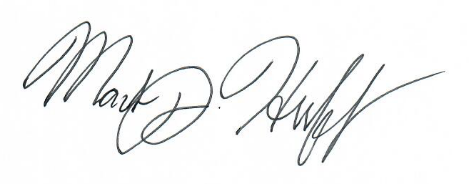 Mark D. Huff